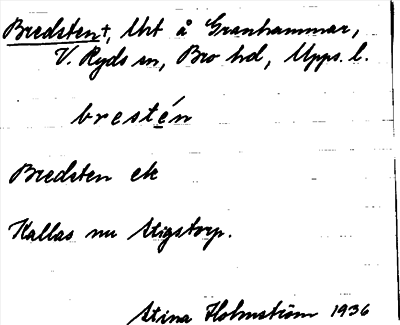 Bredsten†, Utt å Granhammar,
V. Ryds sn, Bro hd, Upps. l.
brestén
Bredsten ek
Kallas nu Stigstorp.
Stina Holmström 1936